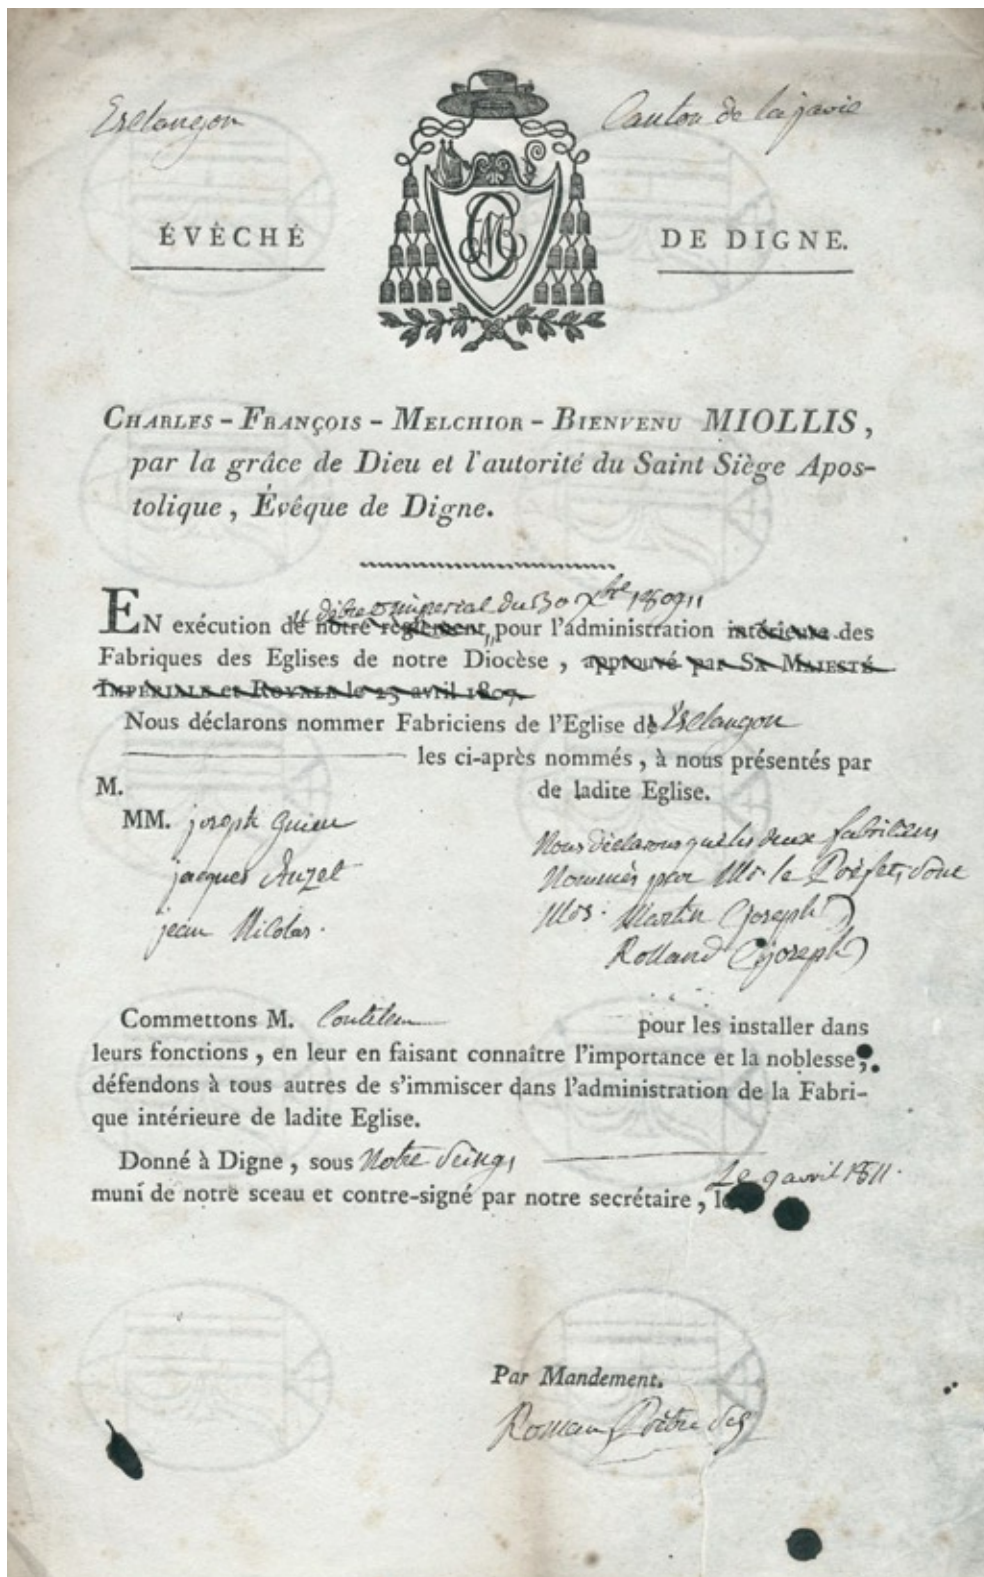 Esclangon
Canton de la javie
ÉVÊCHÉ
DE DIGNE.
CHARLES-FRANÇOIS-MELCHIOR-BIENVENU MIOLLIS,
par la grâce de Dieu et l'autorité du Saint Siège Apos-
tolique, Évêque de Digne.
décret impérial du 30 Xbre 1809
EN exécution de notre règlement, pour l'administration intérieure des
Fabriques des Eglises de notre Diocèse, approuvé par SA MAJESTÉ
IMPÉRIALE et ROYALE le 25 avril 1807.
Nous déclarons nommer Fabriciens de l'Eglise de Esclangon
les ci-après nommés, à nous présentés par
M.
de ladite Eglise.
MM. joseph Guieu
jacques Auzet
jean Nicolas.
Nous déclarons que les deux fabriciens
Nommés par Mr. le Préfet, sont
Mrs. Martin (joseph)
Rolland (joseph)
Commettons M. pour les installer dans
leurs fonctions, en leur en faisant connaître l'importance et la noblesse;
défendons à tous autres de s'immiscer dans l'administration de la Fabri-
que intérieure de ladite Eglise.
Donné à Digne, sous Notre Seing,
Le 9 avril 1811.
muni de notre sceau et contre-signé par notre secrétaire, le
Par Mandement.
Roman Prêtre